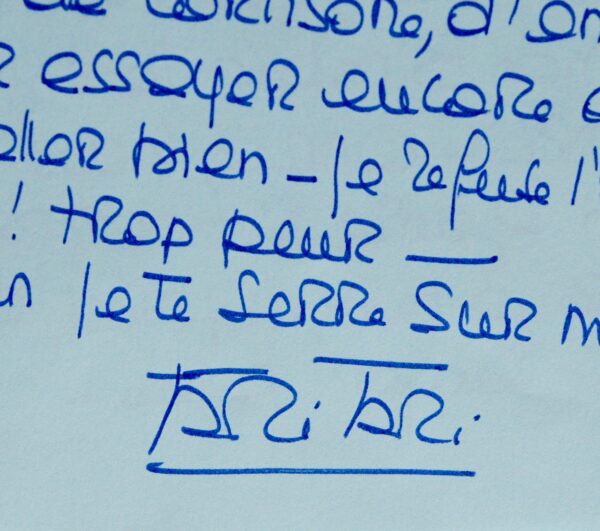 de cortisone, d'en
essayer encore
aller bien - Je refuse l'
! trop peur —
Je te serre sur m
Bri Bri